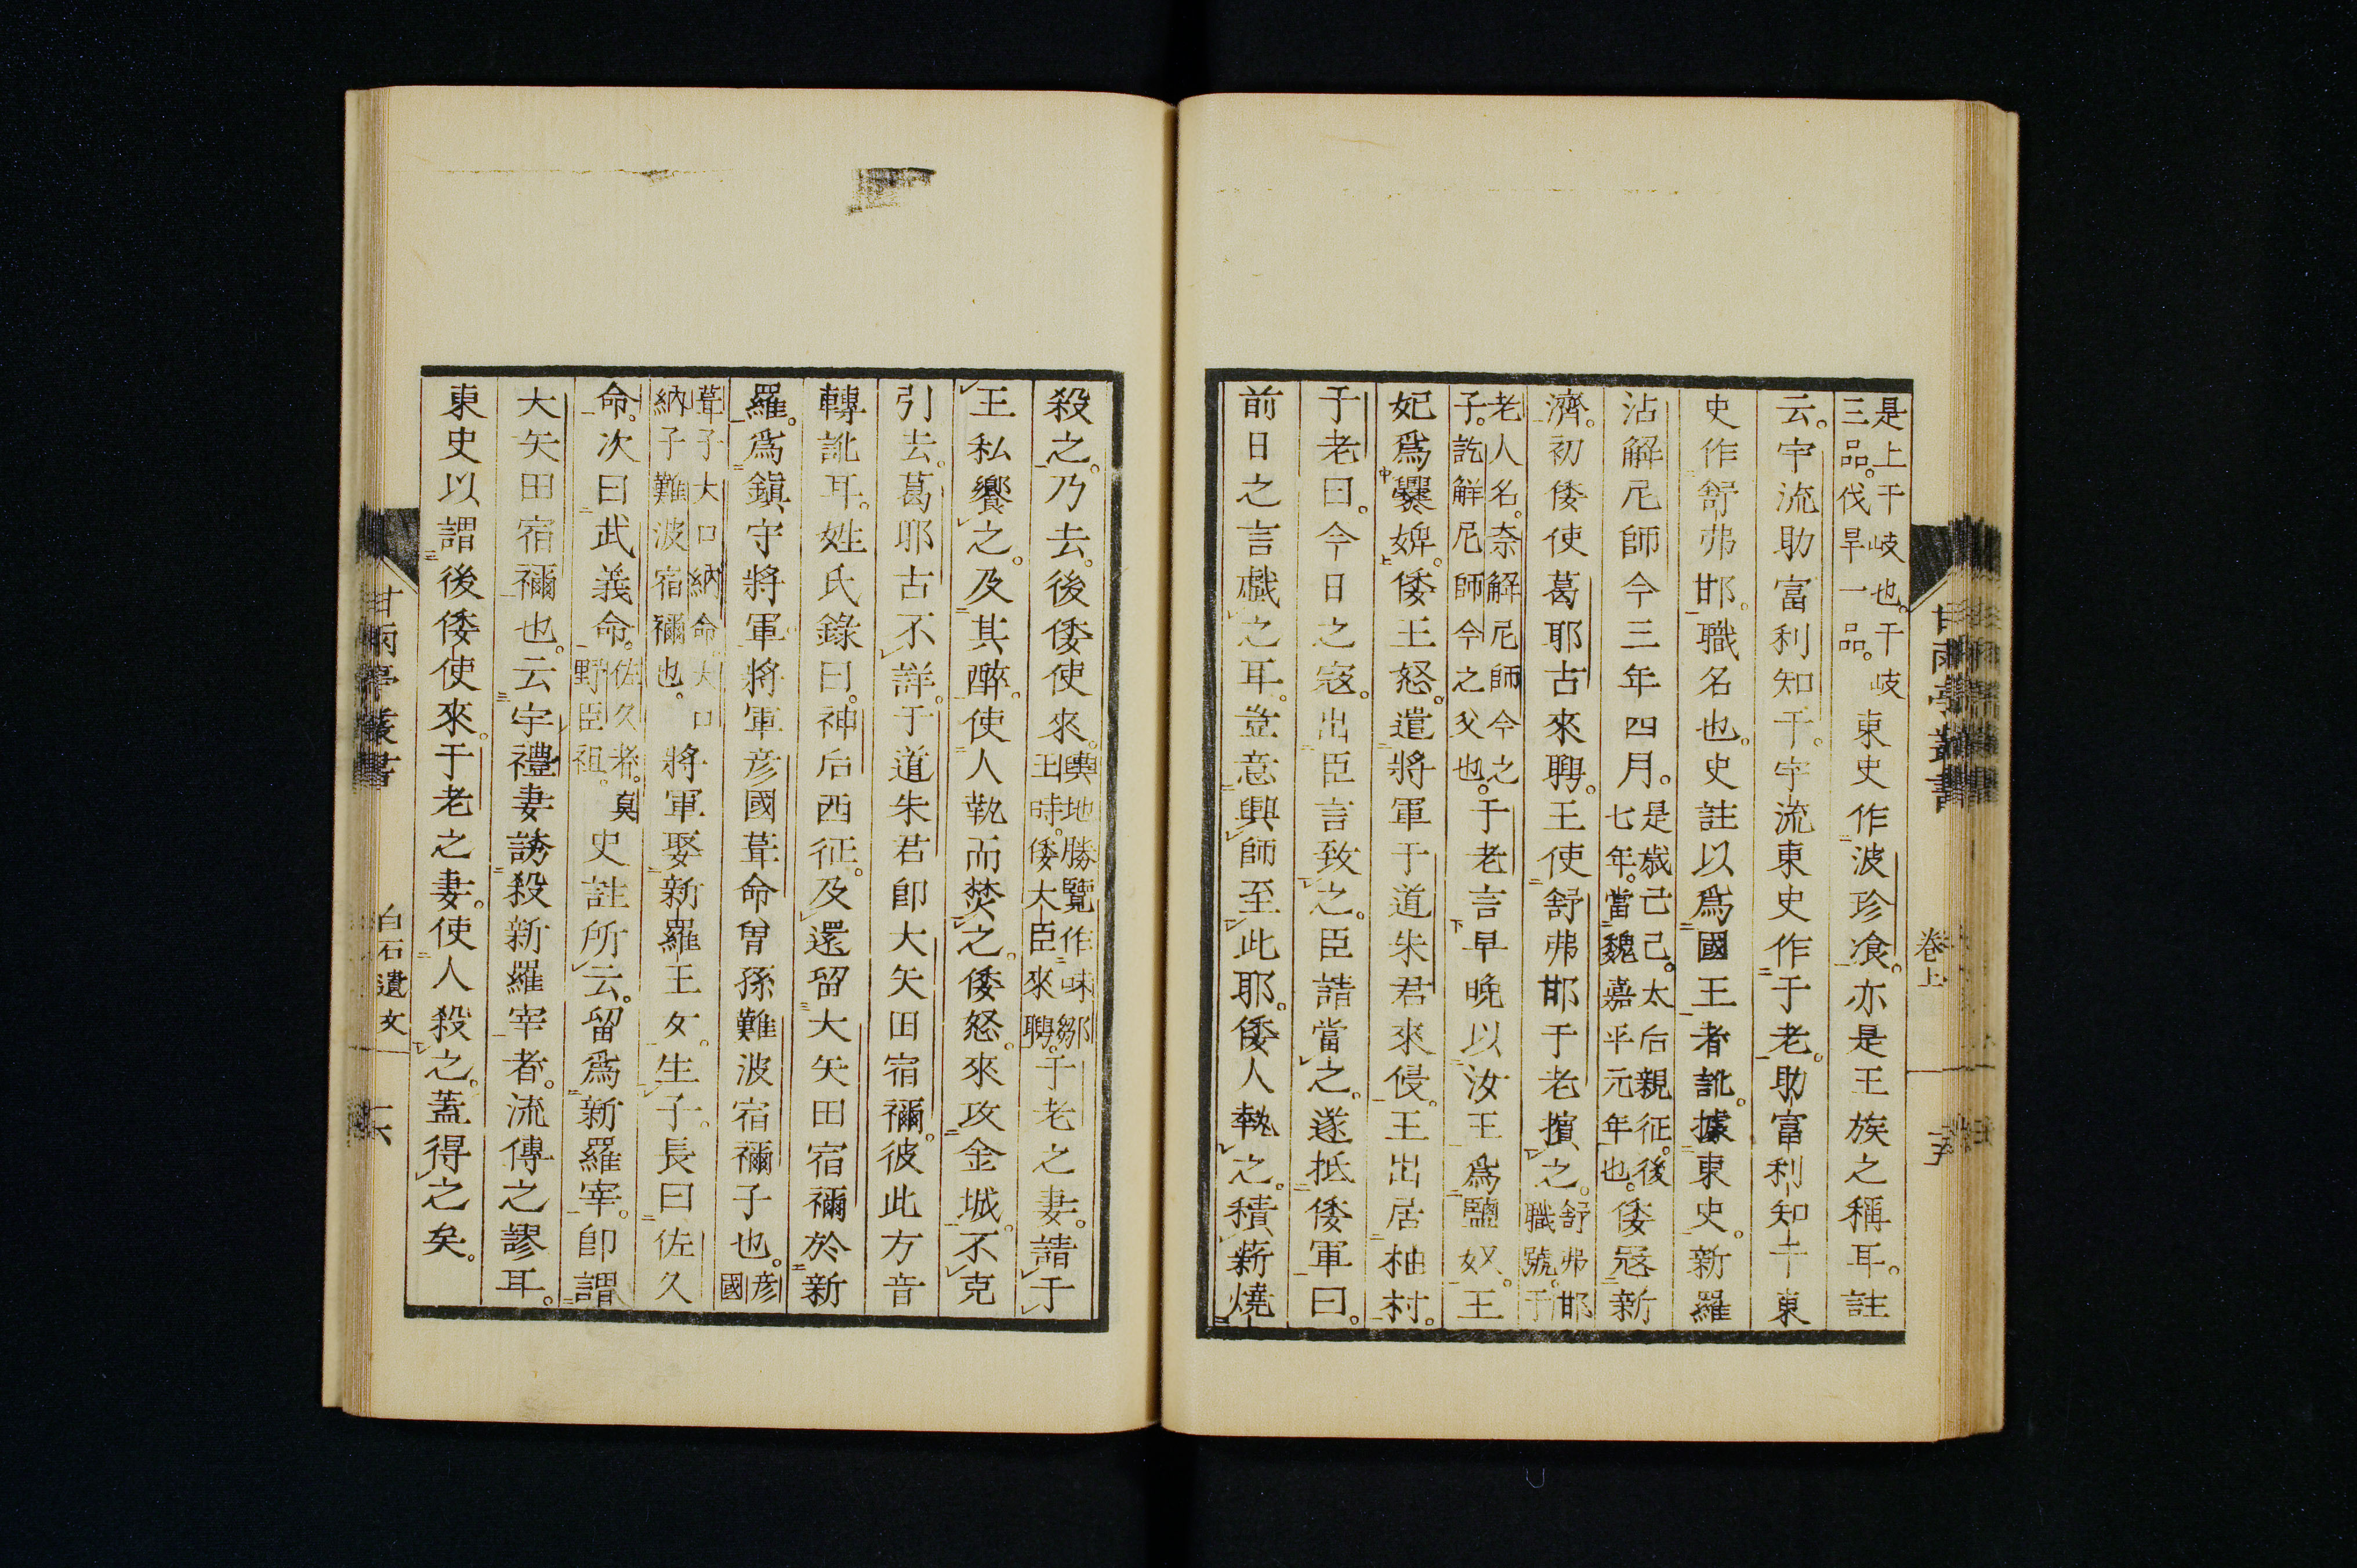 是上干岐也。干岐
三品。伐旱一品。東史作波珍飡。亦是王族之稱耳。註
云。宇流助富利知干。宇流東史作于老。助富利知干東
史作舒弗邯。職名也。史註以爲國王者訛。據東史。新羅
沾解尼師今三年四月。是歲己巳。太后親征。後
七年。當魏嘉平元年也。倭冦新
濟。初倭使葛耶古來聘。王使舒弗邯于老擯之。舒弗邯
職號。于
老人名。奈解尼師今之
子。訖解尼師今之父也。于老言早晚以汝王爲鹽奴。王
妃爲爨婢。倭王怒。遣將軍于道朱君來侵。王出居柚村。
于老曰。今日之寇。出臣言致之。臣請當之。遂抵倭軍曰。
前日之言戲之耳。豈意興師至此耶。倭人執之。積薪燒
甘雨亭叢書
卷上
十五
殺之。乃去。後倭使來。輿地勝覽作味鄒
王時。倭大臣來聘。于老之妻。請于
王私饗之。及其醉。使人執而焚之。倭怒。來攻金城。不克
引去。葛耶古不詳。于道朱君卽大矢田宿禰。彼此方音
轉訛耳。姓氏錄曰。神后西征。及還留大矢田宿禰於新
羅。爲鎮守將軍。將軍彦國葺命曾孫難波宿禰子也。彦
國
葺子大口納命。大口
納子難波宿禰也。將軍娶新羅王女。生子。長曰佐久
命。次曰武義命。佐久者。眞
野臣祖。史註所云。留爲新羅宰。卽謂
大矢田宿禰也。云宇禮妻誘殺新羅宰者。流傳之謬耳。
東史以謂後倭使來。于老之妻。使人殺之。蓋得之矣。
甘雨亭叢書
白石遺文
十六